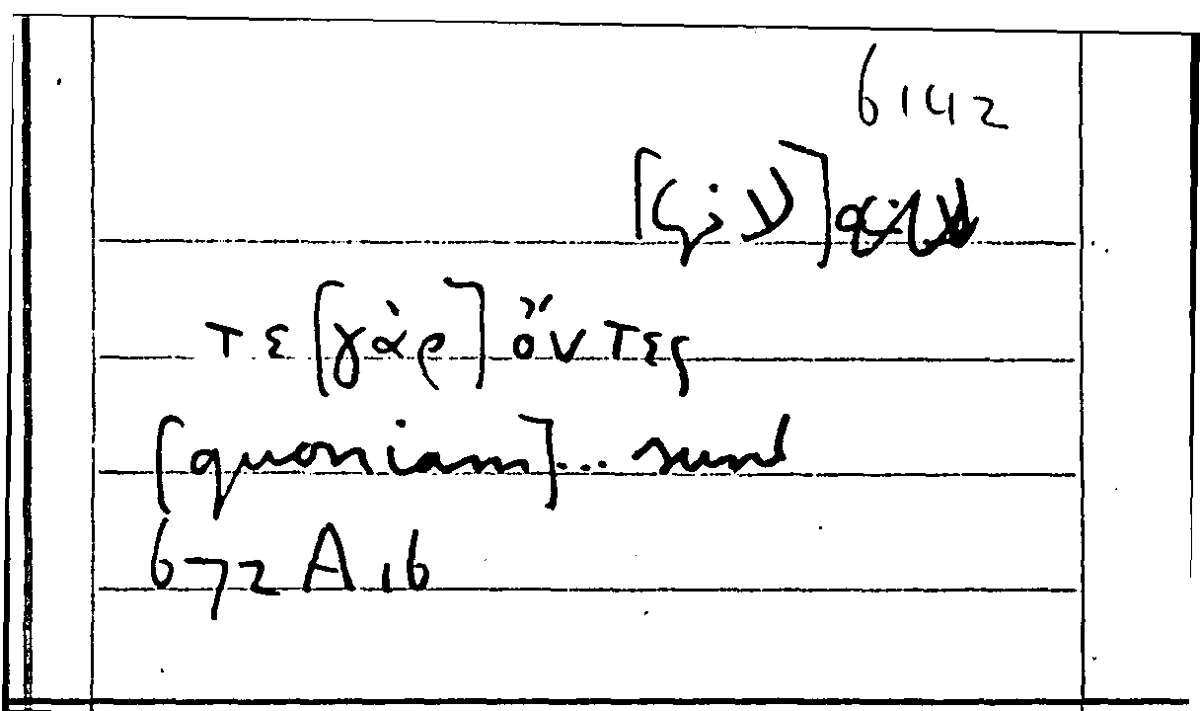 6142
τε [γὰρ] ὄντες
[quoniam]... sunt
672 A 16